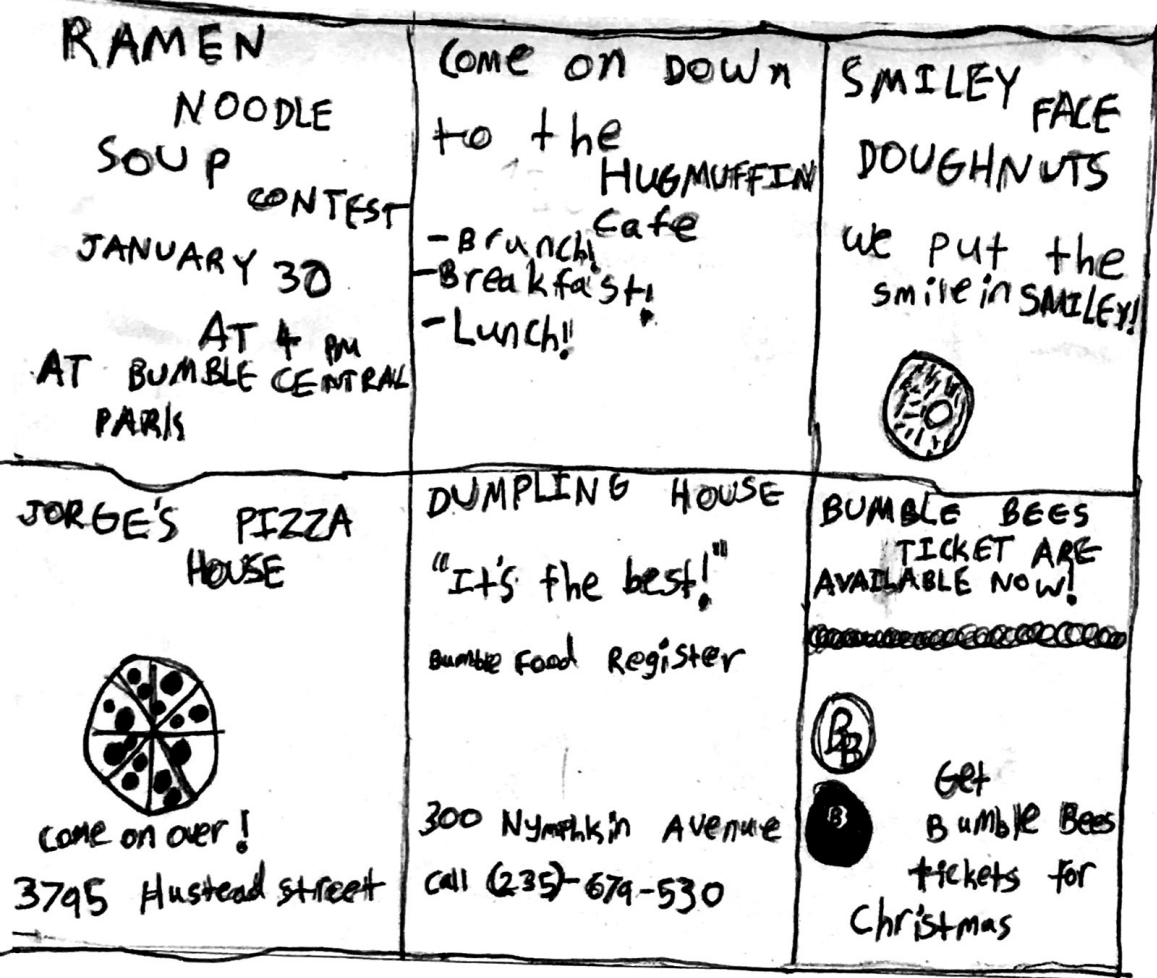 RAMEN
NOODLE
SOUP
CONTEST
JANUARY 30
AT 4 PM
AT BUMBLE CENTRAL
PARK
COME ON DOWN
to the
HUGMUFFIN
Cafe
-Brunch!
-Breakfast!
-Lunch!!
SMILEY FACE
DOUGHNUTS
We put the
smile in SMILEY!
JORGE'S PIZZA
HOUSE
Come on over!
3795 Hustead street
DUMPLING HOUSE
"It's the best!"
Bumble Food Register
300 Nymphkin Avenue
Call (235)-679-530
BUMBLE BEES
TICKET ARE
AVAILABLE NOW!
BB
B
Get
Bumble Bees
tickets for
Christmas